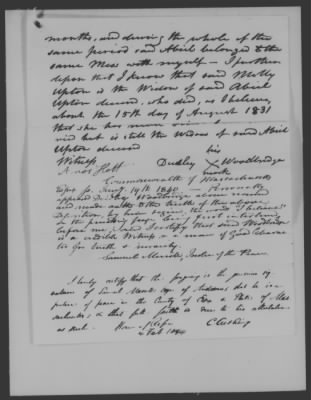 months, and during the whole of the
same period said Abiel belonged to the
same Mess with myself — I further
depose that I know that said Molly
Upton is the Widow of said Abiel
Upton deceased, who died, as I believe,
about the 15th day of August 1831
that she has never
ried but is still the Widow of said Abiel
Upton deceased
Witness his
Amos Holt Dudley X Woodbridge
mark
Commonwealth of Massachusetts
Essex ss. 14th 1840 — Personally
appeared Dudley Woodbridge above named
and made oath to the truth of the above
Deposition by him signed, the words "I believe"
in the preceding page being first interlined
before me, and I certify that said Woodbridge
is a credible Witness & a man of good Charac
ter for truth & veracity.
Samuel Merrill, Justice of the Peace
I hereby certify that the foregoing is the genuine sig
nature of Samuel Merrill Esqr. of Andover that he is a
Justice of peace in the County of Essex & State of Mas
sachusetts & that full faith is due to his attestation
as such. House of Reps
Feb C Cushing